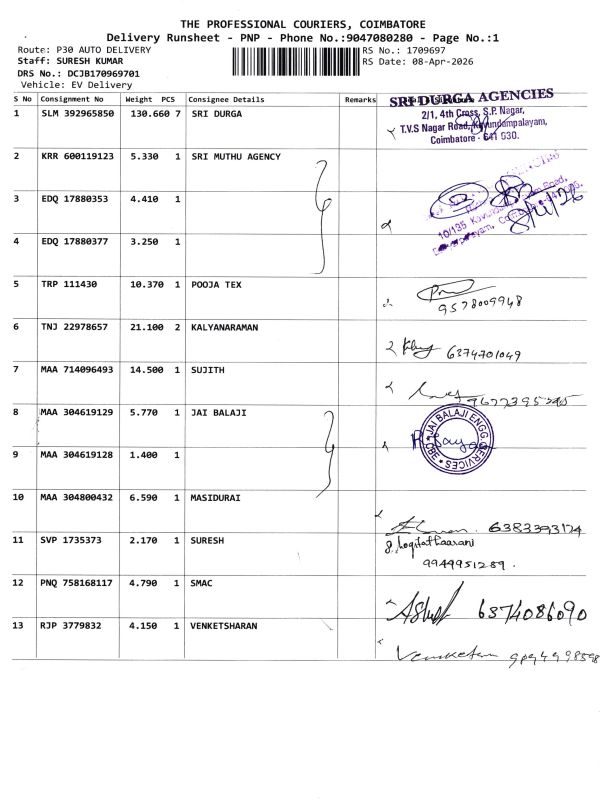 THE PROFESSIONAL COURIERS, COIMBATORE
Delivery Runsheet - PNP - Phone No.:9047080280 - Page No.:1
Route: P30 AUTO DELIVERY
RS No.: 1709697
Staff: SURESH KUMAR
RS Date: 08-Apr-2026
DRS No.: DCJB170969701
Vehicle: EV Delivery
S No Consignment No Weight PCS Consignee Details Remarks
1 SLM 392965850 130.660 7 SRI DURGA
SRI DURGA AGENCIES
2/1, 4th Cross, S.P. Nagar,
T.V.S Nagar Road, Kavundampalayam,
Coimbatore - 641 030.
2 KRR 600119123 5.330 1 SRI MUTHU AGENCY
3 EDQ 17880353 4.410 1
10/135
8/4/26
4 EDQ 17880377 3.250 1
5 TRP 111430 10.370 1 POOJA TEX
9578009948
6 TNJ 22978657 21.100 2 KALYANARAMAN
6374701049
7 MAA 714096493 14.500 1 SUJITH
8 MAA 304619129 5.770 1 JAI BALAJI
JAI BALAJI ENGG SERVICES CBE
9 MAA 304619128 1.400 1
10 MAA 304800432 6.590 1 MASIDURAI
6383393174
11 SVP 1735373 2.170 1 SURESH
9949951289.
12 PNQ 758168117 4.790 1 SMAC
6374086090
13 RJP 3779832 4.150 1 VENKETSHARAN